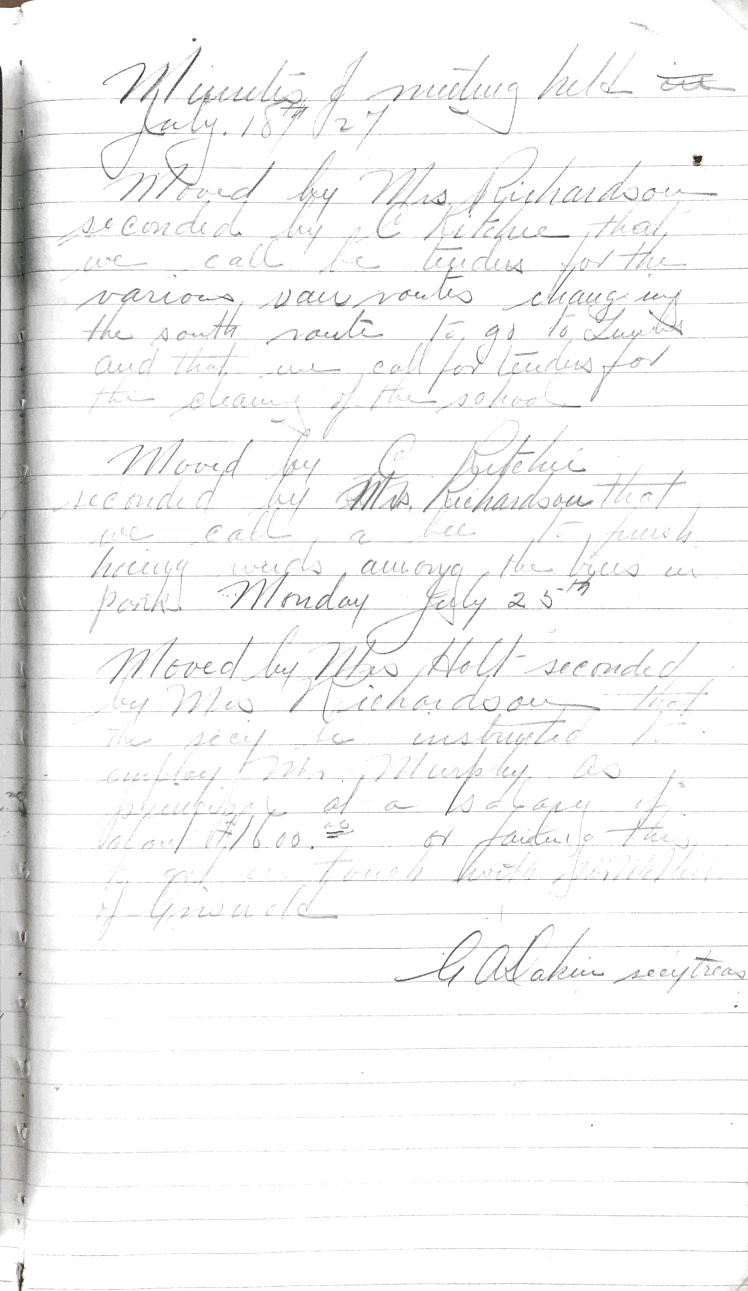 Minutes of meeting held on
July. 18th /27
Moved by Mrs Richardson
seconded by C Ritchie that
we call be tenders for the
various van routes changing
the south route to go to
and that we call for tenders for
the cleaning of the school
Moved by C Ritchie
seconded by Mrs. Richardson that
we call a bee to finish
hoeing weeds among the trees in
park. Monday July 25th
Moved by Mrs Holt seconded
by Mrs Richardson that
the secy be instructed to
employ Mr. Murphy as
principal at a salary of
$1600.00 or failing this
to get in touch with
of Griswold
G A Dakin secy treas